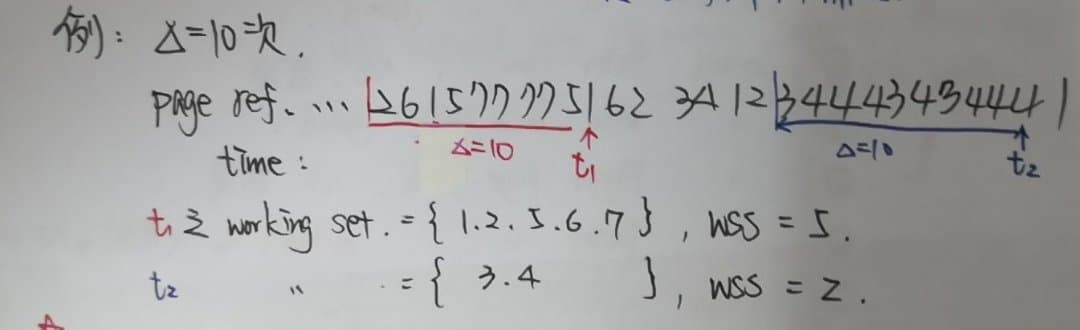 例): Δ=10次.
page ref. ... 2615777751623412344434344441
Δ=10 t1 Δ=10 t2
time :
t1之 working set. = { 1.2.5.6.7 } , WSS = 5.
t2 " = { 3.4 } , WSS = 2.